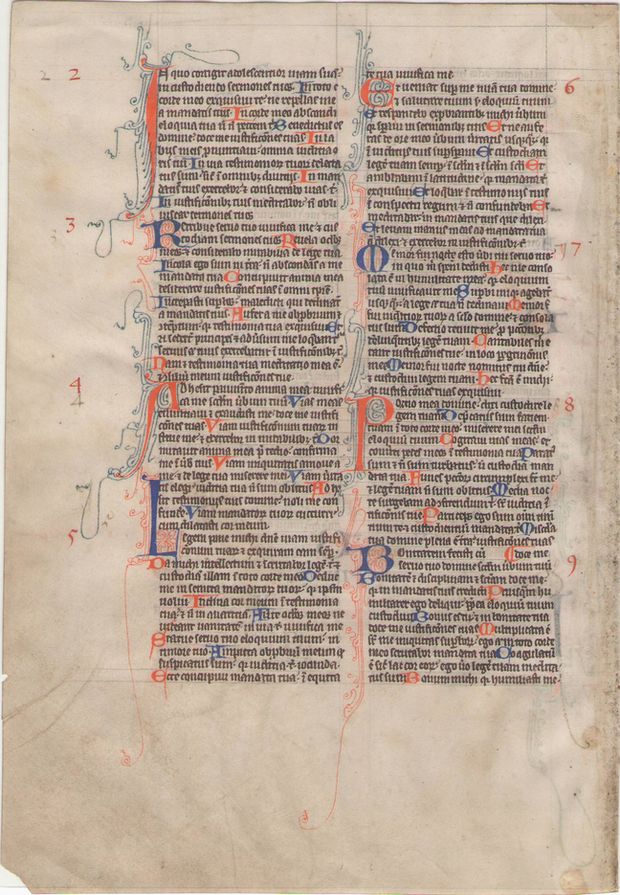 2
In quo corrigit adolescentior viam suam
in custodiendo sermones tuos. In toto c
corde meo exquisivi te ne repellas me
a mandatis tuis. In corde meo abscondi
eloquia tua ut n peccem t. Benedictus es
domine doce me iustificones tuas. In la
biis meis pronuntiavi omnia iudicia o
ris tui. In via testimoniorum tuorum delecta
tus sum sic in omnibus divitiis. In man
datis tuis exercebor et considerabo vias t.
In iustificonibus tuis meditabor n obli
viscar sermones tuos.
3
Retribue servo tuo vivifica me et cus
todiam sermones tuos. Revela oclos
meos et considerabo mirabilia de lege tua
Incola ego sum in tra n abscondas a me
mandata tua. Concupivit anima mea
desiderare iustificones tuas in omni tpre.
Increpasti supbos maledicti qui declinant
a mandatis tuis. Aufer a me obprbrium
et ctemptum q testimonia tua exquisivi. Et
et sederunt principes et adversum me loqbant
servus at tuus exercebatur in iustificonibus t.
Nam et testimonia tua meditatio mea e
et consilium meum iustificones tue.
4
Adhesit pavimento anima mea vivifi
ca me scdm verbum tuum. Vias meas
enuntiavi et exaudisti me doce me iustifi
cones tuas. Viam iustificonum tuarum in
strue me et exercebor in mirabilibus t. Dor
mitavit anima mea pre tedio confirma
me in verbis tuis. Viam iniquitatis amove a
me et de lege tua miserere mei. Viam verita
tis elegi iudicia tua n sum oblitus. Adhe
si testimoniis tuis domine noli me con
fundere. Viam mandatorum tuorum cucurri
cum dilatasti cor meum.
5
Legem pone michi dne viam iustifi
conum tuarum et exquiram eam semp.
Da michi intellectum et scrutabor legem t. et
custodiam illam in toto corde meo. Deduc
me in semita mandatorum tuorum q ipsam
volui. Inclina cor meum in testimonia
tua et n in avaritia. Averte oclos meos ne
videant vanitatem in via t. vivifica me
Statue servo tuo eloquium tuum in
timore tuo. Amputa obprbrium meum q
suspicatus sum q iudicia t. iocunda.
Ecce concupivi mandata tua in equita
te tua vivifica me
6
Et veniat sup me mia tua domine
et salutare tuum scdm eloquium tuum
Et respondebo exprobrantibus michi verbum
q speravi in sermonibus tuis. Et ne aufe
ras de ore meo verbum veritatis usqq q
in iudiciis tuis supspavi. Et custodiam
legem tuam semper in sclm et in sclm scli. Et
ambulabam in latitudine q mandata t.
exquisivi. Et loqbar in testimoniis tuis
in conspectu regum et n confundebar. Et
meditabar in mandatis tuis que dilexi.
Et levavi manus meas ad mandata tua
que dilexi et exercebor in iustificonibus t.
7
Memor esto verbi tui servo tuo
in quo m spem dedisti. Hec me conso
lata e in humilitate mea q eloquium
tuum vivificavit me. Supbi iniq agebant
usqq a lege at tua n declinavi. Memor
fui iudiciorum tuorum a sclo domine et consola
tus sum. Defectio tenuit me pro peccatoribus
derelinquentibus legem tuam. Cantabiles m
erant iustificones tue in loco pegrinonis
mee. Memor fui nocte nominis tui dne
et custodivi legem tuam. Hec fca e michi
q iustificones tuas exquisivi.
8
Portio mea domine dixi custodire le
gem tuam. Deprecatus sum faciem
tuam in toto corde meo miserere mei scdm
eloquium tuum. Cogitavi vias meas et
converti pedes meos in testimonia tua. Parat
sum et n sum turbatus ut custodiam man
data tua. Funes peccatorum circumplexi sunt me
et legem tuam n sum oblitus. Media noc
te surgebam ad confitendum t. sup iudicia ius
tificonis tue. Particeps ego sum omium
timentium te et custodientium mandata t. Miscdia
tua domine plena e tra iustificones tuas
doce me
9
Bonitatem fecisti cum
servo tuo domine scdm verbum tuum
Bonitatem et disciplinam et sciam doce me
q in mandatis tuis credidi. Priusquam hu
miliarer ego deliqui ptea eloquium tuum
custodivi. Bonus es tu et in bonitate tua
doce me iustificones tuas. Multiplicata e
sup me iniquitas supborum ego at in toto corde
meo scrutabor mandata tua. Coagulatum
e sic lac cor eorum ego vero legem tuam medita
tus sum. Bonum michi q humiliasti me